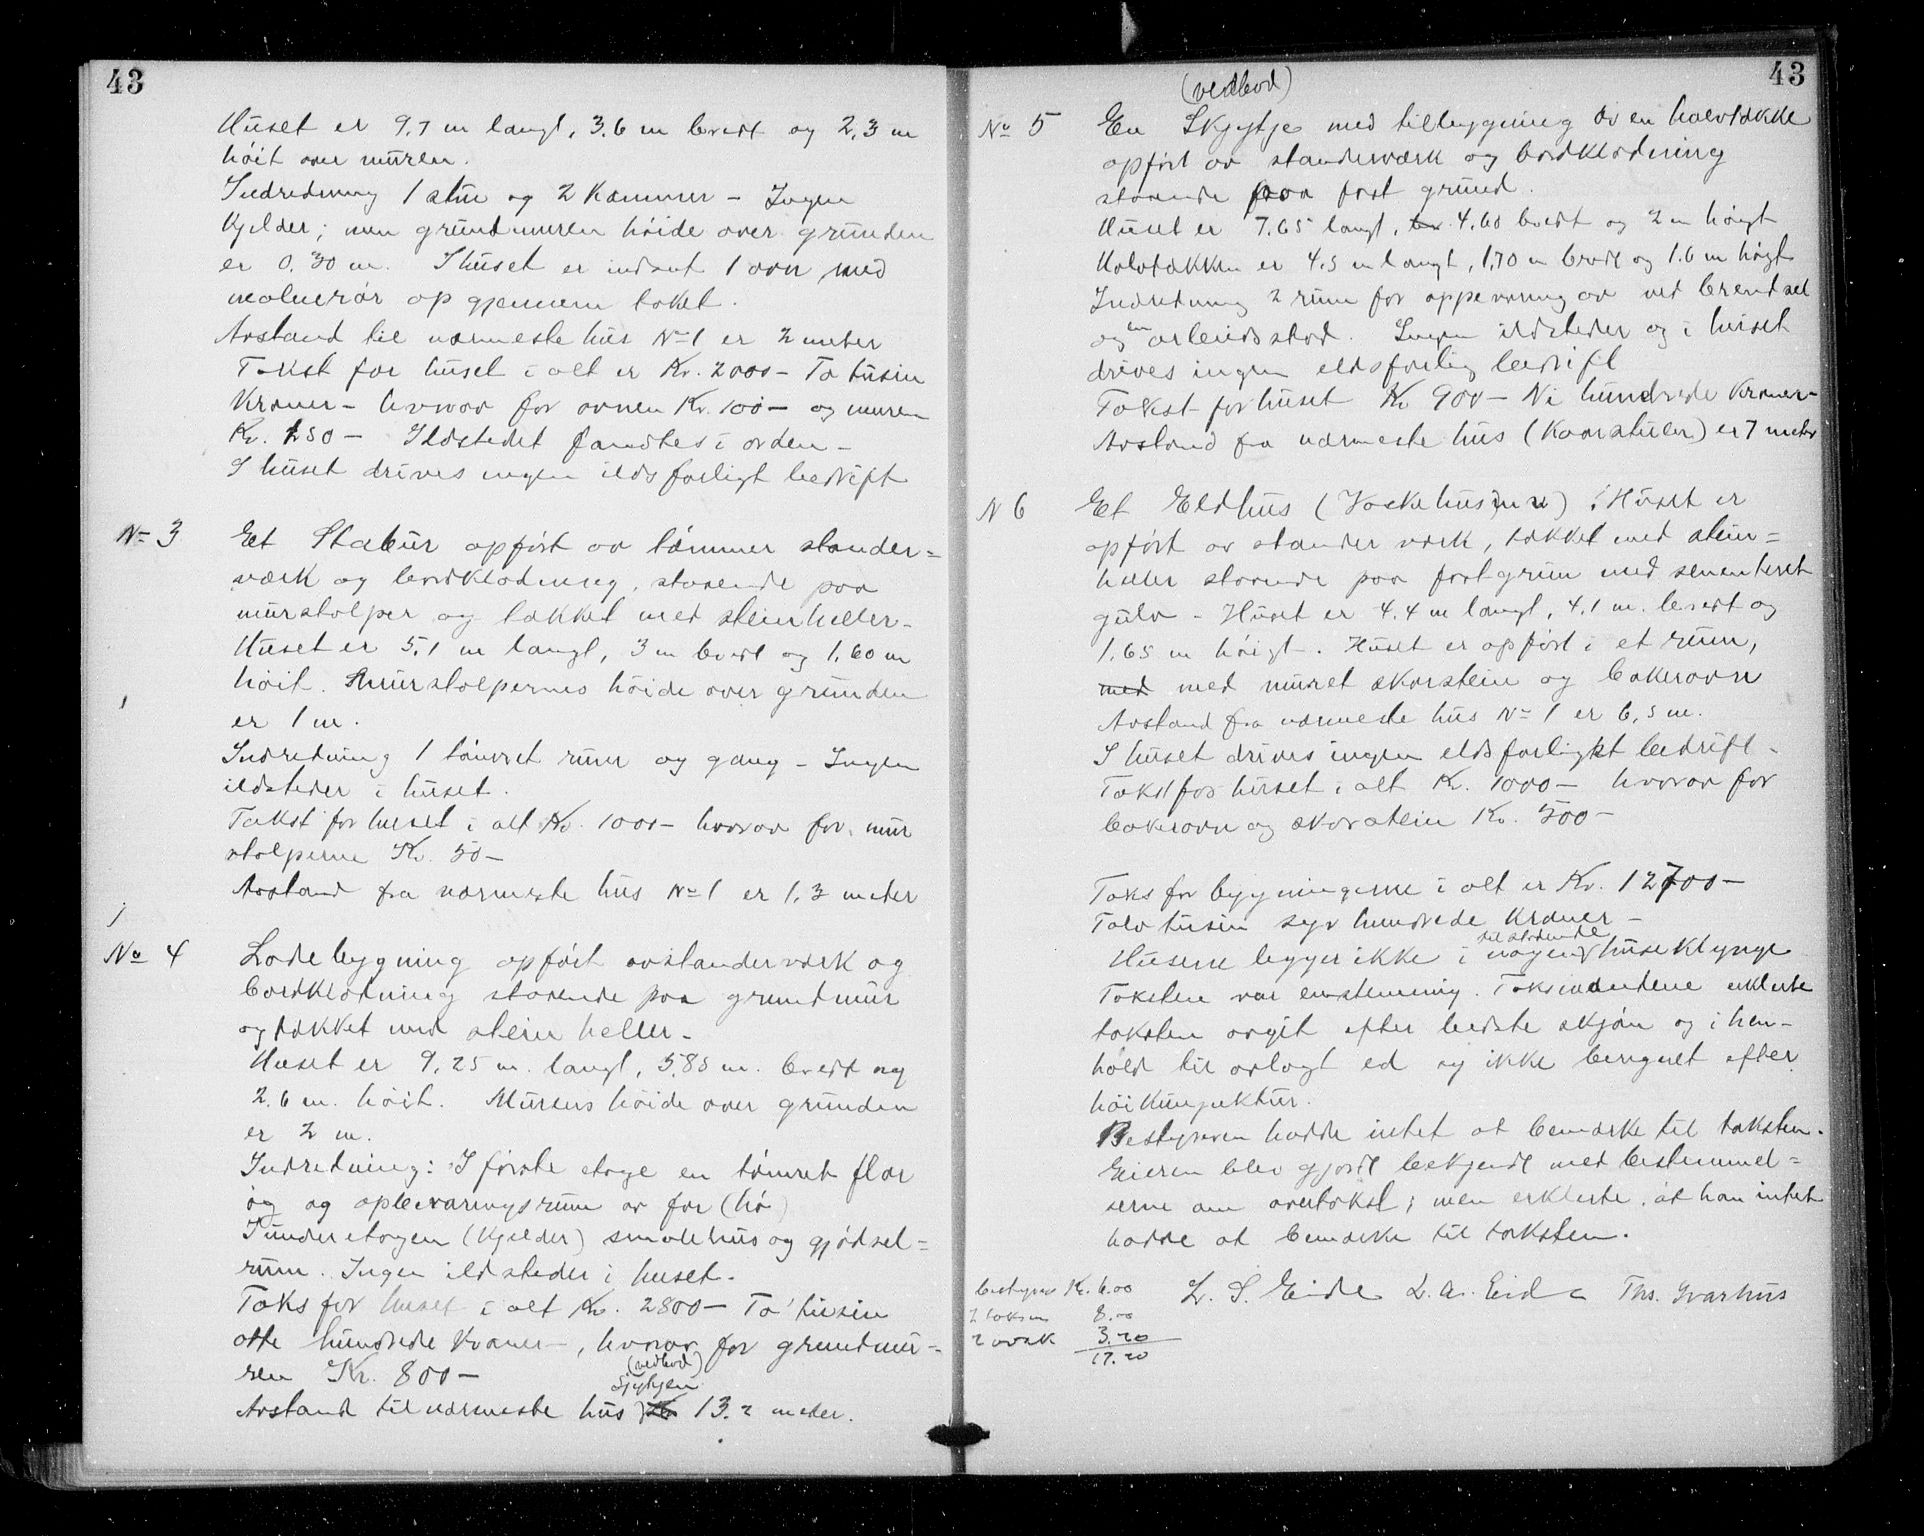 43
Huset er 9,7 m langt, 3,6 m bredt og 2,3 m
höit over muren.
Indredning 1 stue og 2 Kammer – Ingen
Kjelder; men grundmuren höide over grunden
er 0.30 m. I huset er indsat 1 ovn med
rør op gjennem taket.
Avstand til nærmeste hus No 1 er 2 meter
Takst for huset i alt er Kr. 2000 – To tusin
Kroner – hvorav for ovnen Kr. 100 – og muren
Kr. 250 – Ildstedet fandtes i orden –
I huset drives ingen ildsfarligt bedrift
No 3 Et Stabur opfört av tömmer stander=
værk og bordklædning, staaende paa
murstolper og tækket med steinheller –
Huset er 5,1 m langt, 3 m bredt og 1,60 m
höit. Murstolpernes höide over grunden
er 1 m.
Indredning 1 tömret rum og gang – Ingen
ildsteder i huset.
Takst for huset i alt Kr. 1000 – hvorav for mur
stolperne Kr. 50 –
Avstand fra nærmeste hus No 1 er 1,3 meter
No 4 Lodebygning opfört av standerværk og
bordklædning staaende paa grundmur
og tækket med stein heller –
Huset er 9,25 m. langt, 5,85 m. bredt og
2,6 m. höit. Murens höide over grunden
er 2 m.
Indredning: I förste etage en tömret flor
og og opbevaringsrum av for (hö)
I underetagen (Kjelder) smalehus og gjödsel=
rum. Ingen ildsteder i huset –
Taks for huset i alt Kr. 2800 – To tusin
otte hundrede Kroner –, hvorav for grundmu=
ren Kr. 800 –
(vedbod)
Avstand til nærmeste hus 13.2 meter.
43
(vedbod)
No 5 En Skjytje med tilbygning av en halvtække
opfört av standerværk og bordklædning
staaende paa fast grund.
Huset er 7.65 langt, 4.60 bredt og 2 m högt
Halvtækken er 4.5 m langt, 1,70 m bredt og 1.6 m högt
Indredning 2 rum for oppevaring av ved brendsel
og en arbeidsstod. Ingen ildsteder og i huset
drives ingen eldsfarlig bedrift
Takst for huset Kr 900 – Ni hundrede Kroner –
Avstand fra nærmeste hus (Kaarstuen) er 7 meter
N 6 Et Eldhus (Vaskehus) . Huset er
opfört av stander værk, tækket med stein=
heller staaende paa fast grun med sementeret
gulv – Huset er 4.4 m langt, 4,1 m. bredt og
1,65 m höigt. Huset er opfört i et rum,
med med muret skorstein og bakerovn
Avstand fra nærmeste hus No 1 er 6,5 m.
I huset drives ingen eldsfarligt bedrift –
Takst for huset i alt Kr. 1000 – hvorav for
bakerovn og skorstein Kr. 500 –
Taks for bygningerne i alt er Kr. 12700 –
Tolv tusin syv hundrede Kroner –
Husene legger ikke i nogen huseklynge
Taksten var enstemmig. Taksmændene erklerte
taksten avgit efter bedste skjön og i hen-
hold til avlagt ed og ikke beregnet efter
höikunjuktur.
Bestyreren hadde intet at bemærke til taksten.
Eieren blev gjort bekjendt med bestemmel=
serne om overtakst; men erklerte, at han intet
hadde at bemærke til taksten.
Bestyrer Kr. 6.00 L. S. Eide L. A. Eide Ths. Svarhus
2 taksm 8.00
2 avsk 3.20
17.20